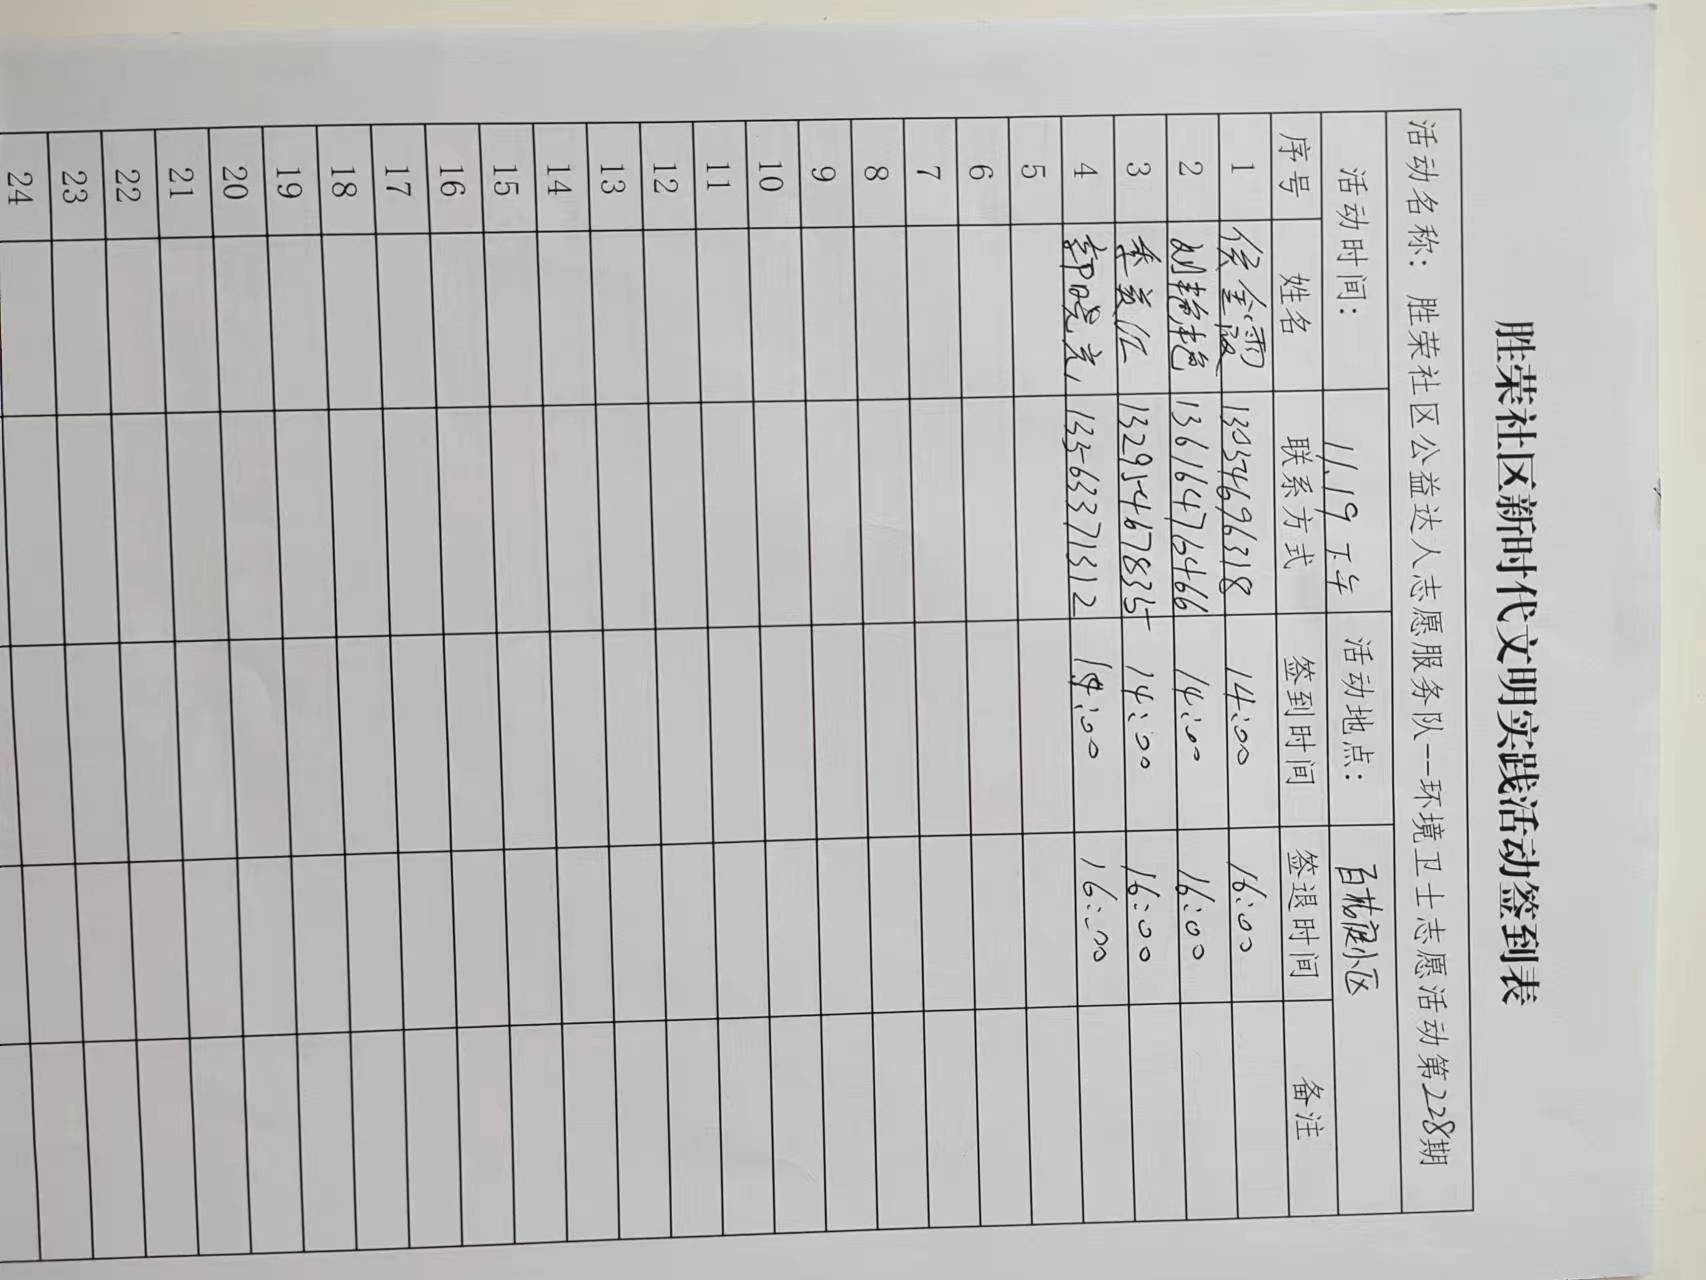 胜荣社区新时代文明实践活动签到表
活动名称：胜荣社区公益达人志愿服务队--环境卫士志愿活动第228期
活动时间： 11.19 下午 活动地点： 百桃庭小区
序号 姓名 联系方式 签到时间 签退时间 备注
1 侯金霞 13054696318 14:00 16:00
2 刘艳艳 13616476466 14:00 16:00
3 季美江 13295467835 14:00 16:00
4 郭晓兰 13563371312 14:00 16:00
5
6
7
8
9
10
11
12
13
14
15
16
17
18
19
20
21
22
23
24